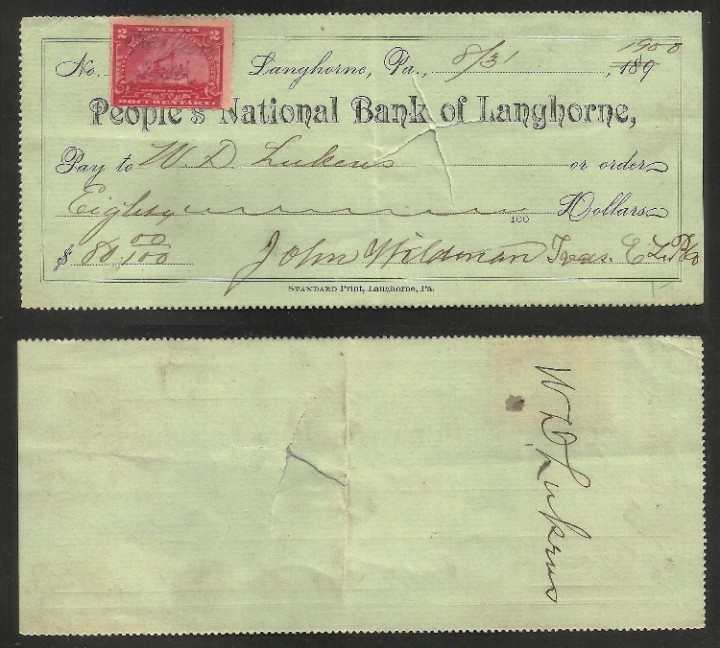 TWO CENTS
2 2
DOCUMENTARY
No. Langhorne, Pa., 8/31 1900, 189
People's National Bank of Langhorne,
Pay to W. D. Lukens or order
Eighty 100 Dollars
$ 80 00/100 John Wildman Treas.
STANDARD Print, Langhorne, Pa.
W D Lukens